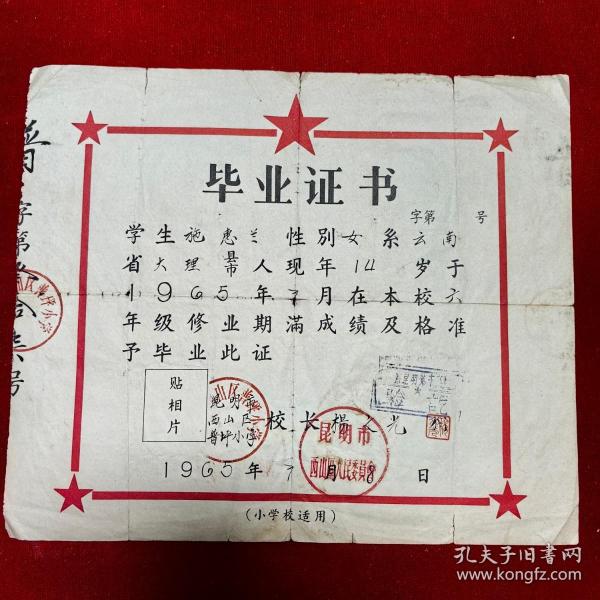 毕业证书
字第 号
学生施惠兰性别女系云南
省大理县市人现年14岁于
1965年7月在本校六
年级修业期满成绩及格准
予毕业此证
贴相片
昆明市
西山区
普坪小学
校长 楊 光
昆明市
西山区人民委員会
1965年7月8日
(小学校适用)
普字第 号
孔夫子旧书网
www.kongfz.com